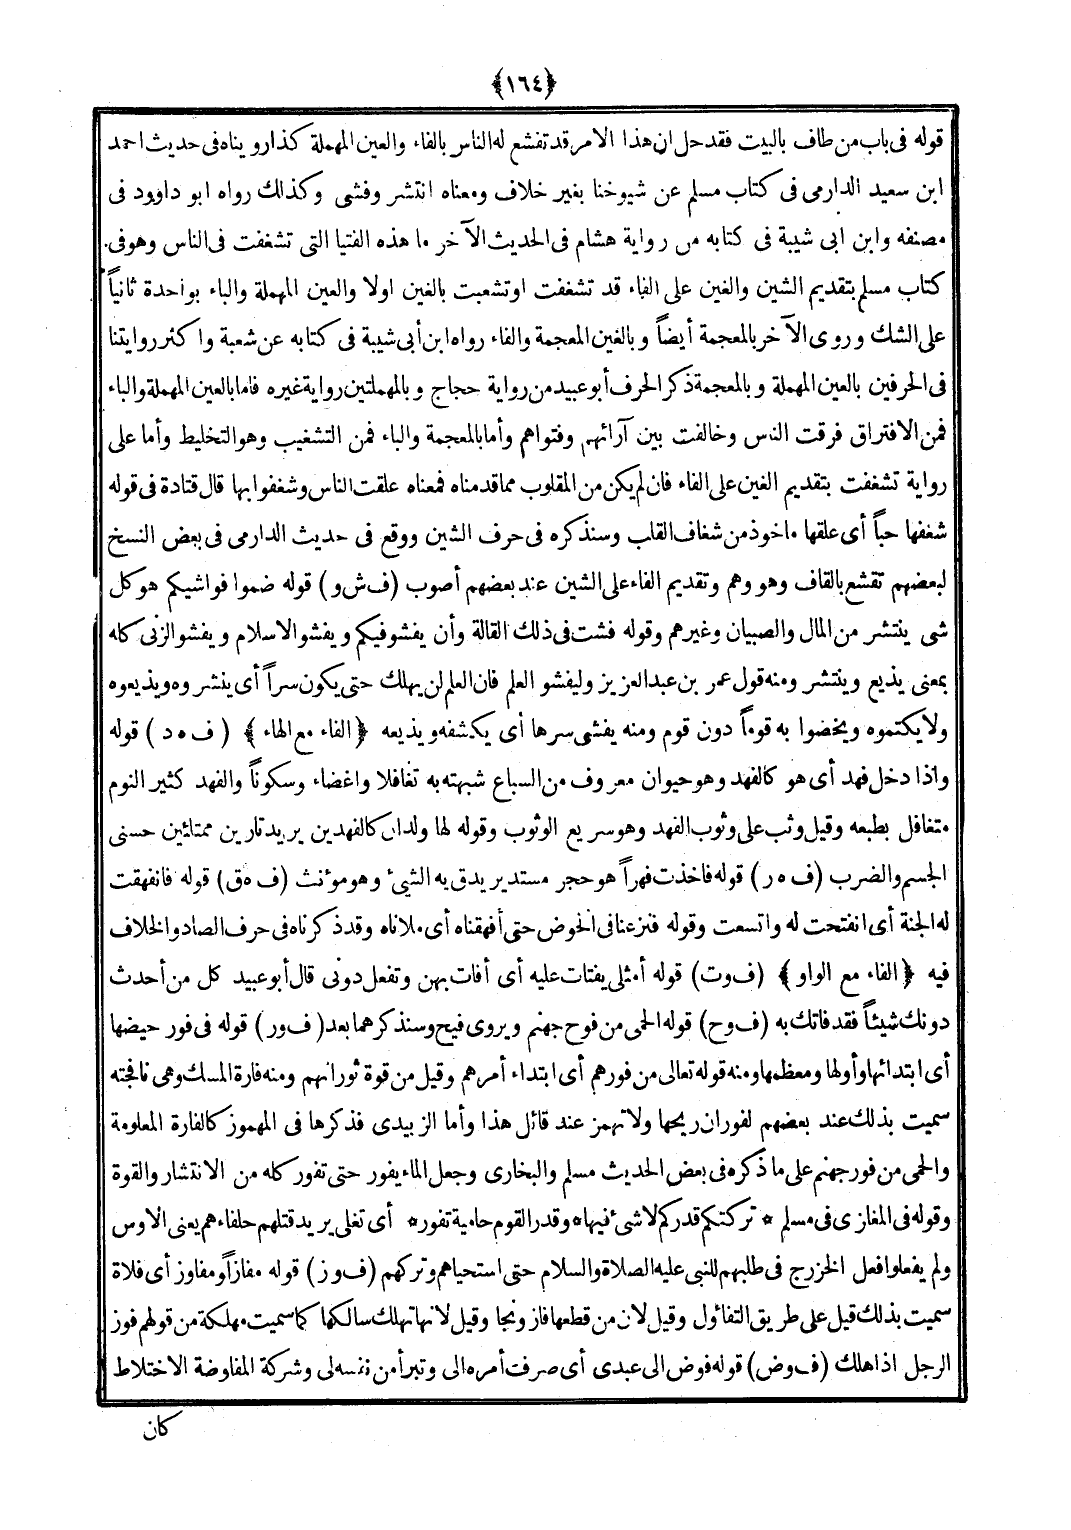 ﴿١٦٤﴾
قوله فى باب من طاف بالبيت فقد حل ان هذا الامر قد تفشع له الناس بالفاء والعين المهملة كذا رويناه فى حديث احمد
ابن سعيد الدارمى فى كتاب مسلم عن شيوخنا بغير خلاف ومعناه انتشر وفشى وكذلك رواه ابو داوود فى
مصنفه وابن ابى شيبة فى كتابه من رواية هشام فى الحديث الآخر ما هذه الفتيا التى تشغفت فى الناس وهو فى
كتاب مسلم بتقديم الشين والغين على الفاء قد تشغفت او تشعبت بالغين اولا والعين المهملة والباء بواحدة ثانياً
على الشك وروى الآخر بالمعجمة أيضاً وبالغين المعجمة والفاء رواه ابن أبى شيبة فى كتابه عن شعبة واكثر روايتنا
فى الحرفين بالعين المهملة وبالمعجمة ذكر الحرف أبو عبيد من رواية حجاج وبالمهملتين رواية غيره فاما بالعين المهملة والباء
فمن الافتراق فرقت الناس وخالفت بين آرائهم وفتواهم وأما بالمعجمة والباء فمن التشغيب وهو التخليط وأما على
رواية تشغفت بتقديم الغين على الفاء فان لم يكن من المقلوب مما قدمناه فمعناه علقت الناس وشغفوا بها قال قتادة فى قوله
شغفها حباً أى علقها ماخوذ من شغاف القلب وسنذكره فى حرف الشين ووقع فى حديث الدارمى فى بعض النسخ
لبعضهم تقشع بالقاف وهو وهم وتقديم الفاء على الشين عند بعضهم أصوب (ف ش و) قوله ضموا فواشيكم هو كل
شى ينتشر من المال والصبيان وغيرهم وقوله فشت فى ذلك القالة وأن يفشو فيكم ويفشو الاسلام ويفشو الزنى كله
بمعنى يذيع وينتشر ومنه قول عمر بن عبد العزيز وليفشو العلم فان العلم لن يهلك حتى يكون سراً أى ينشروه ويذيعوه
ولا يكتموه ويخضوا به قوماً دون قوم ومنه يفشى سرها أى يكشفه ويذيعه ﴿الفاء مع الهاء﴾ (ف ه د) قوله
واذا دخل فهد أى هو كالفهد وهو حيوان معروف من السباع شبهته به تغافلا واغضاء وسكوناً والفهد كثير النوم
متغافل بطبعه وقيل وثب على وثوب الفهد وهو سريع الوثوب وقوله لها ولدان كالفهدين يريد تارين ممتلئين حسنى
الجسم والضرب (ف ه ر) قوله فاخذت فهراً هو حجر مستدير يدق به الشئ وهو مونث (ف ه ق) قوله فانفهقت
له الجنة أى انفتحت له واتسعت وقوله فنزعنا فى الحوض حتى أفهقناه أى ملاناه وقد ذكرناه فى حرف الصاد والخلاف
فيه ﴿الفاء مع الواو﴾ (ف و ت) قوله أمثلى يفتات عليه أى أفات بهن وتفعل دونى قال أبو عبيد كل من أحدث
دونك شيئاً فقد فاتك به (ف و ح) قوله الحمى من فوح جهنم ويروى فيح وسنذكرهما بعد (ف و ر) قوله فى فور حيضها
أى ابتدائها وأولها ومعظمها ومنه قوله تعالى من فورهم أى ابتداء أمرهم وقيل من قوة ثورانهم ومنه فارة المسك وهى نافجته
سميت بذلك عند بعضهم لفوران ريحها ولا تهمز عند قائل هذا وأما الزبيدى فذكرها فى المهموز كالفارة المعلومة
والحمى من فور جهنم على ما ذكره فى بعض الحديث مسلم والبخارى وجعل الماء يفور حتى تفور كله من الانتشار والقوة
وقوله فى المغازى فى مسلم * تركتكم قدركم لا شئ فيها * وقدر القوم حامية تفور * أى تغلى يريد قتلهم حلفاءهم يعنى الاوس
ولم يفعلوا فعل الخزرج فى طلبهم للنبى عليه الصلاة والسلام حتى استحياهم وتركهم (ف و ز) قوله مفازاً ومفاوز أى فلاة
سميت بذلك قيل على طريق التفاؤل وقيل لان من قطعها فاز ونجا وقيل لانها تهلك سالكها كما سميت مهلكة من قولهم فوز
الرجل اذا هلك (ف و ض) قوله فوض الى عبدى أى صرفت أمره الى وتبرأ من نفسه لى وشركة المفاوضة الاختلاط
كان